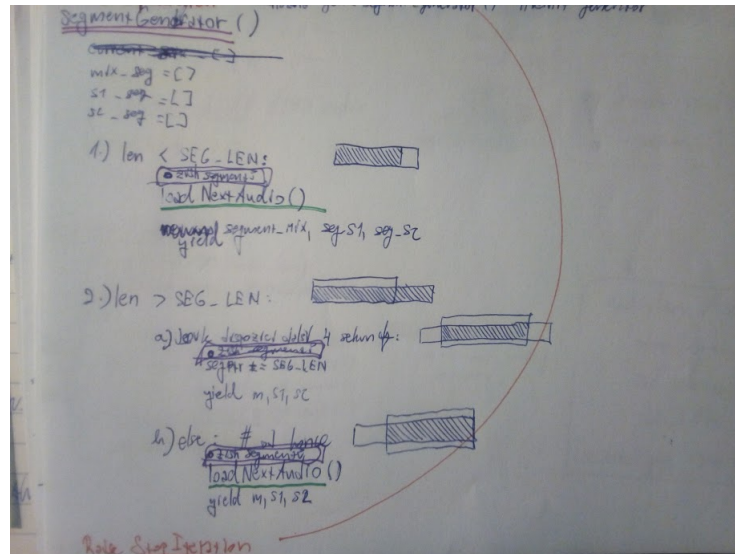 segmentGenerator()
mix_seg = []
s1_seg = []
s2_seg = []
1.) len < SEG_LEN:
zisk segmentu
load NextAudio()
yield segment_mix, seg_S1, seg_S2
2.) len > SEG_LEN:
a) 4 sekundy:
segPtr += SEG_LEN
yield m, s1, s2
b) else: #
zisk segmentu
load NextAudio()
yield m, s1, s2
Raise StopIteration